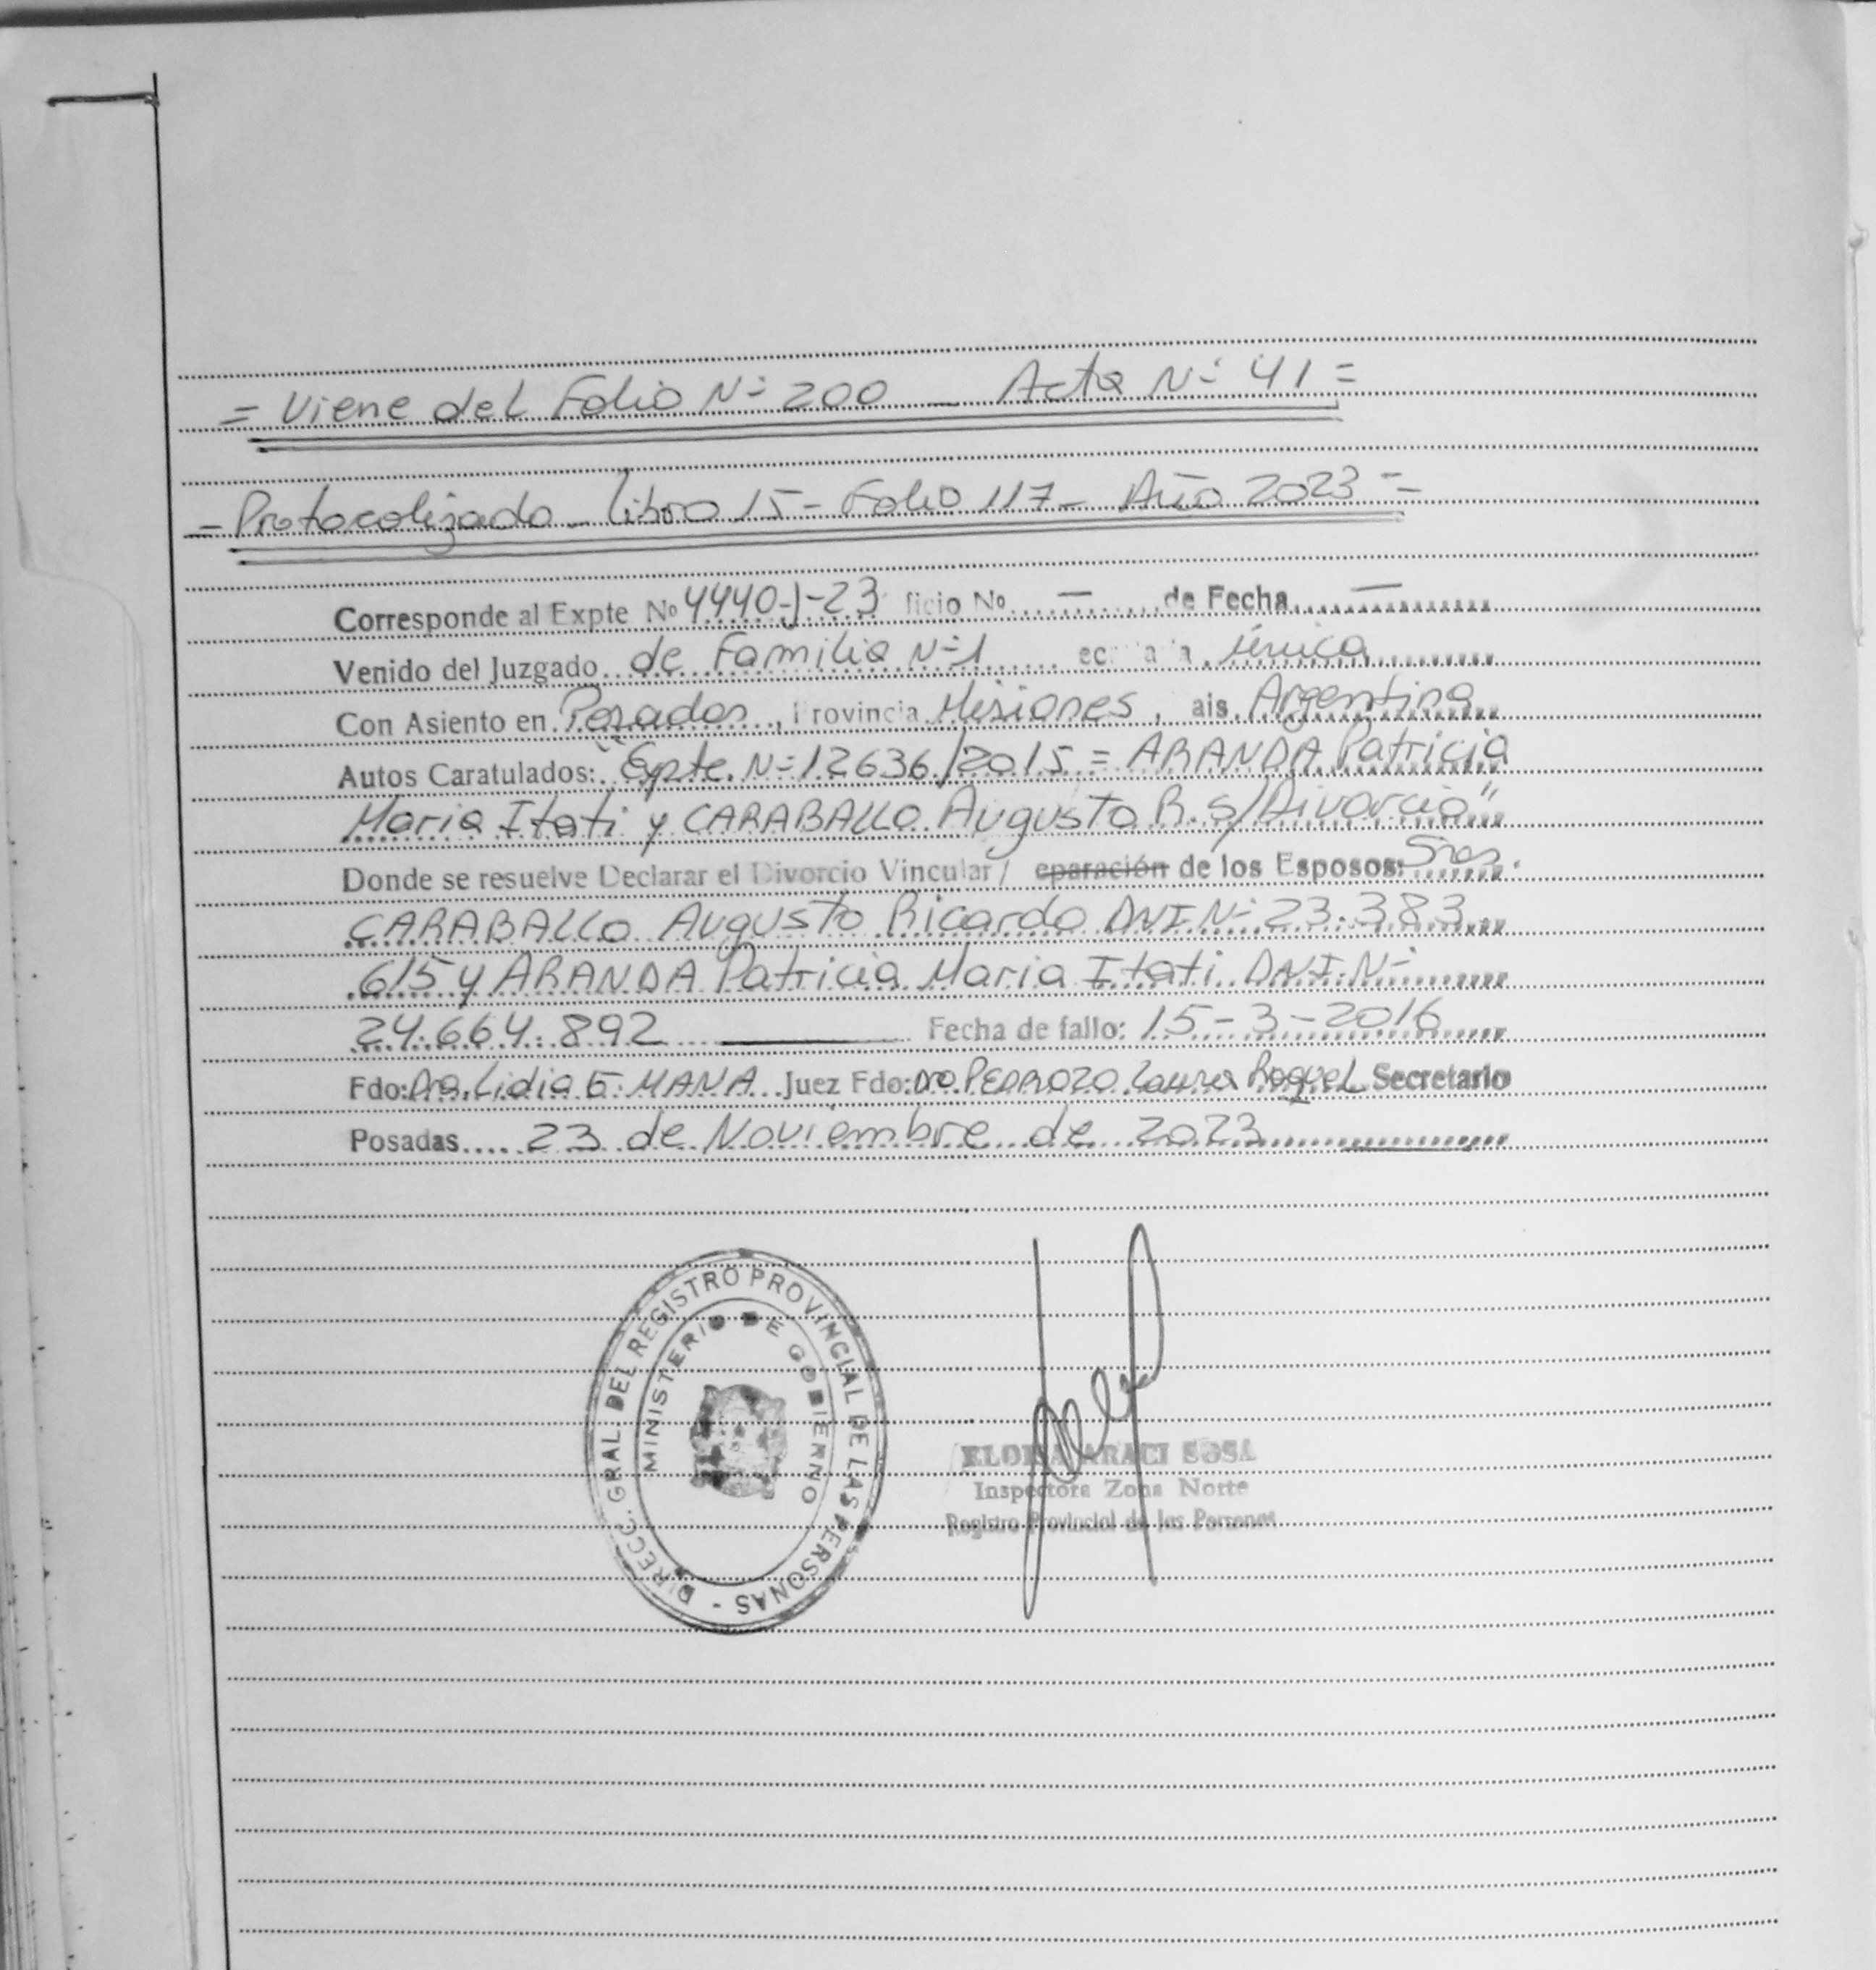 = Viene del Folio Nº 200 _ Acta Nº 41 =
= Protocolizado _ Libro 15 - Folio 117 - Año 2023 =
Corresponde al Expte Nº 4440-J-23 ficio No. — de Fecha —
Venido del Juzgado de Familia Nº 1 única
Con Asiento en Posadas, Provincia Misiones, ais Argentina
Autos Caratulados: "Expte. Nº 12636/2015 = ARANDA Patricia
Maria Itati y CARABALLO Augusto R. S/Divorcio"
Donde se resuelve Declarar el Divorcio Vincular / eparación de los Esposos: Sres.
CARABALLO Augusto Ricardo DNI Nº 23.383.
615 y ARANDA Patricia Maria Itati DNI. Nº
24.664.892 Fecha de fallo: 15-3-2016
Fdo: Dra. Lidia E. MANA Juez Fdo: Dra PEDROZO Laura Raquel Secretario
Posadas 23 de Noviembre de 2023
DIRECC. GRAL. DEL REGISTRO PROVINCIAL DE LAS PERSONAS -
MINISTERIO DE GOBIERNO
ELOISA ARACI SOSA
Inspectora Zona Norte
Registro Provincial de las Personas